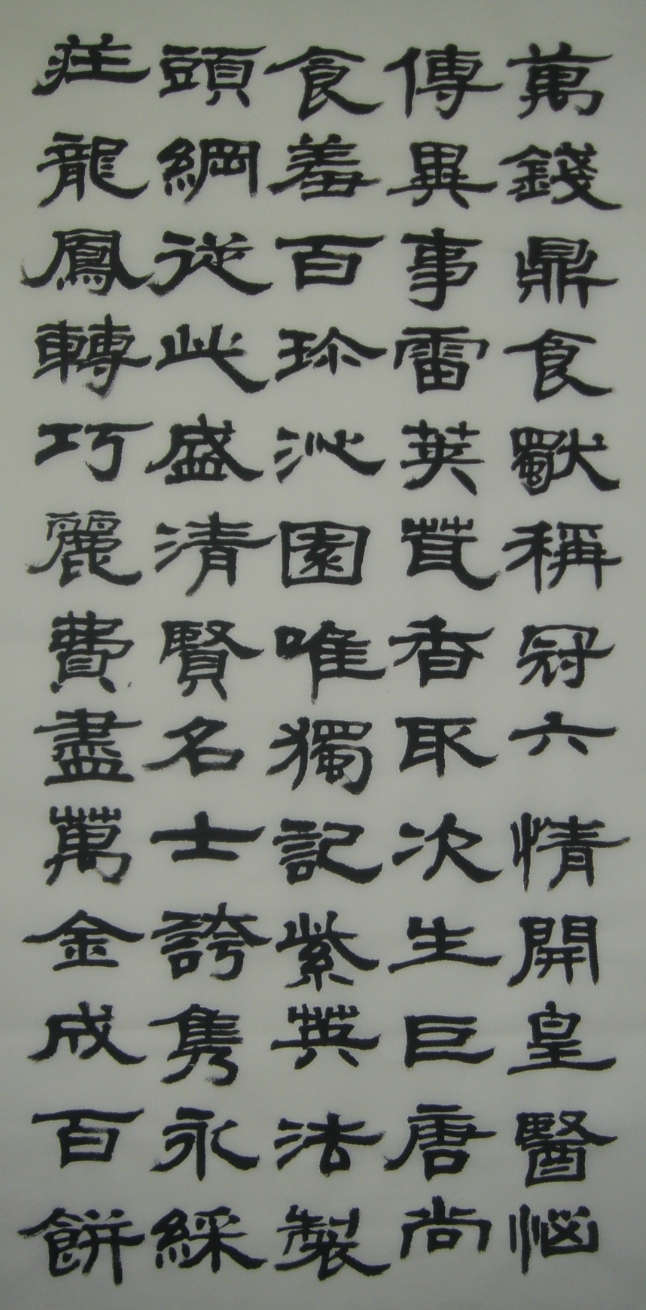 萬錢鼎食獨稱冠六情開皇醫惱
傳異事雷莢茸香取次生巨唐尚
食羞百珍沁園唯獨記紫英法製
頭綱從此盛清賢名士誇雋永綵
莊龍鳳轉巧麗費盡萬金成百餠